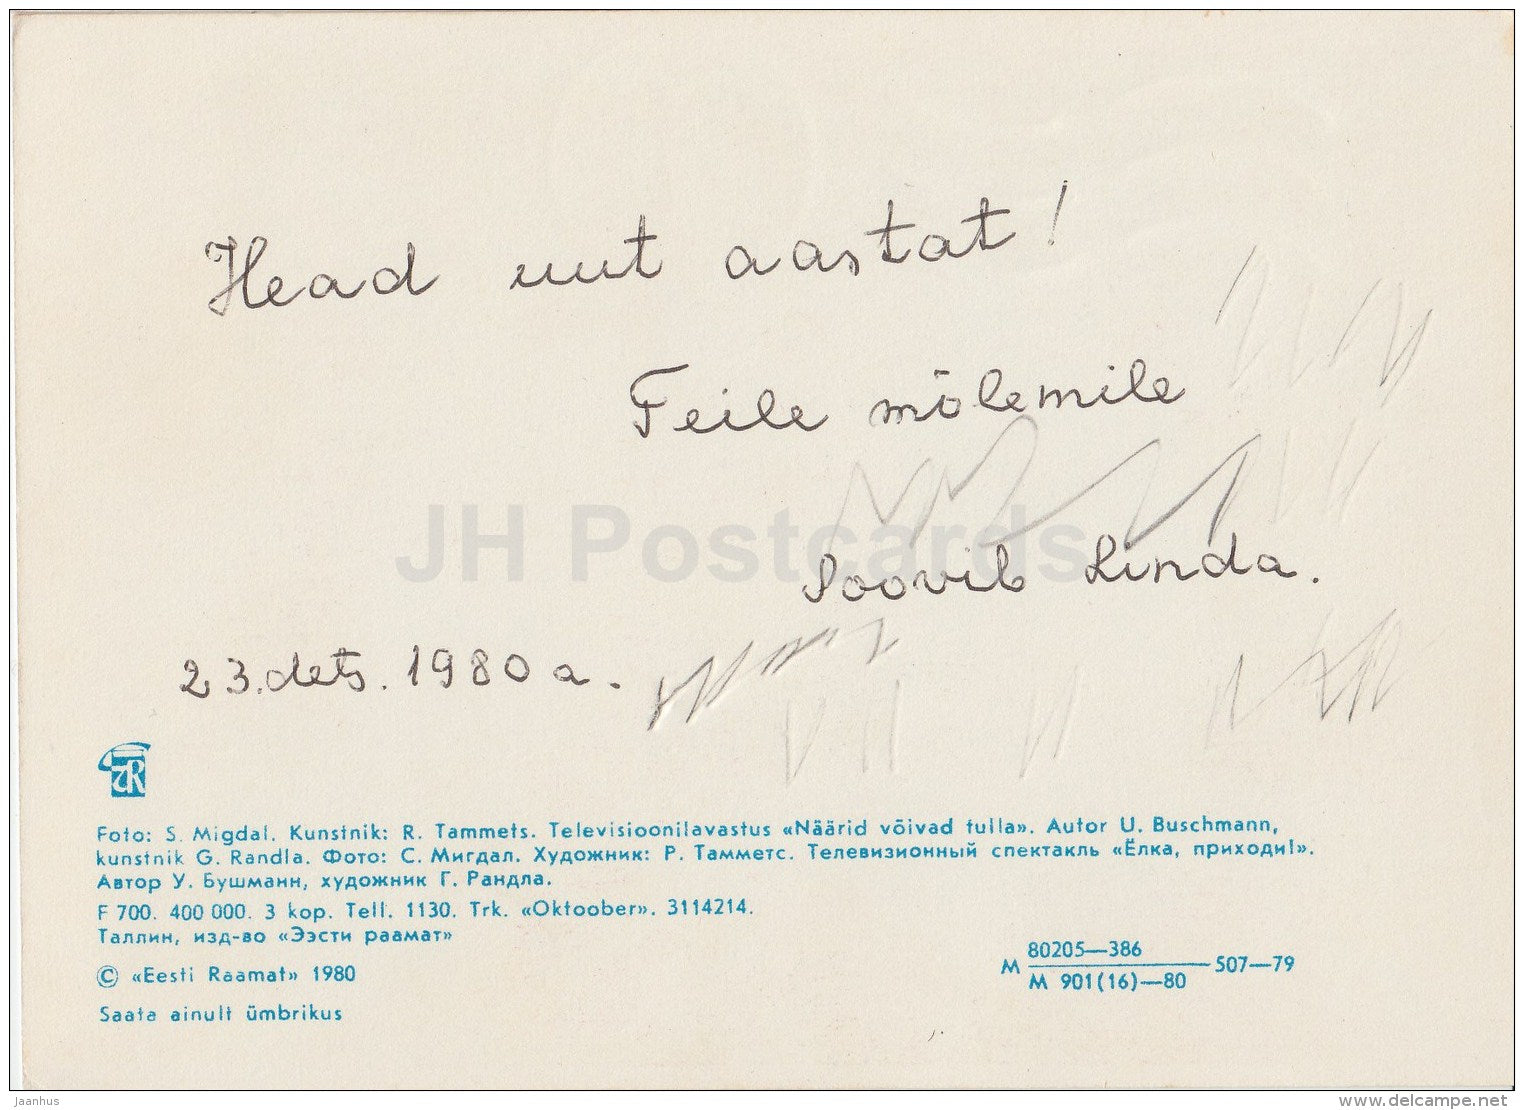 Head uut aastat!
Teile mõlemile
JH Postcards
Soovib Linda.
23. dets. 1980 a.
TR
Foto: S. Migdal. Kunstnik: R. Tammets. Televisioonilavastus «Näärid võivad tulla». Autor U. Buschmann,
kunstnik G. Randla. Фото: С. Мигдал. Художник: Р. Тамметс. Телевизионный спектакль «Ёлка, приходи!».
Автор У. Бушманн, художник Г. Рандла.
F 700. 400 000. 3 kop. Tell. 1130. Trk. «Oktoober». 3114214.
Таллин, изд-во «Ээсти раамат»
80205—386
М 507—79
М 901(16)—80
© «Eesti Raamat» 1980
Saata ainult ümbrikus
Jaanhus
www.delcampe.net